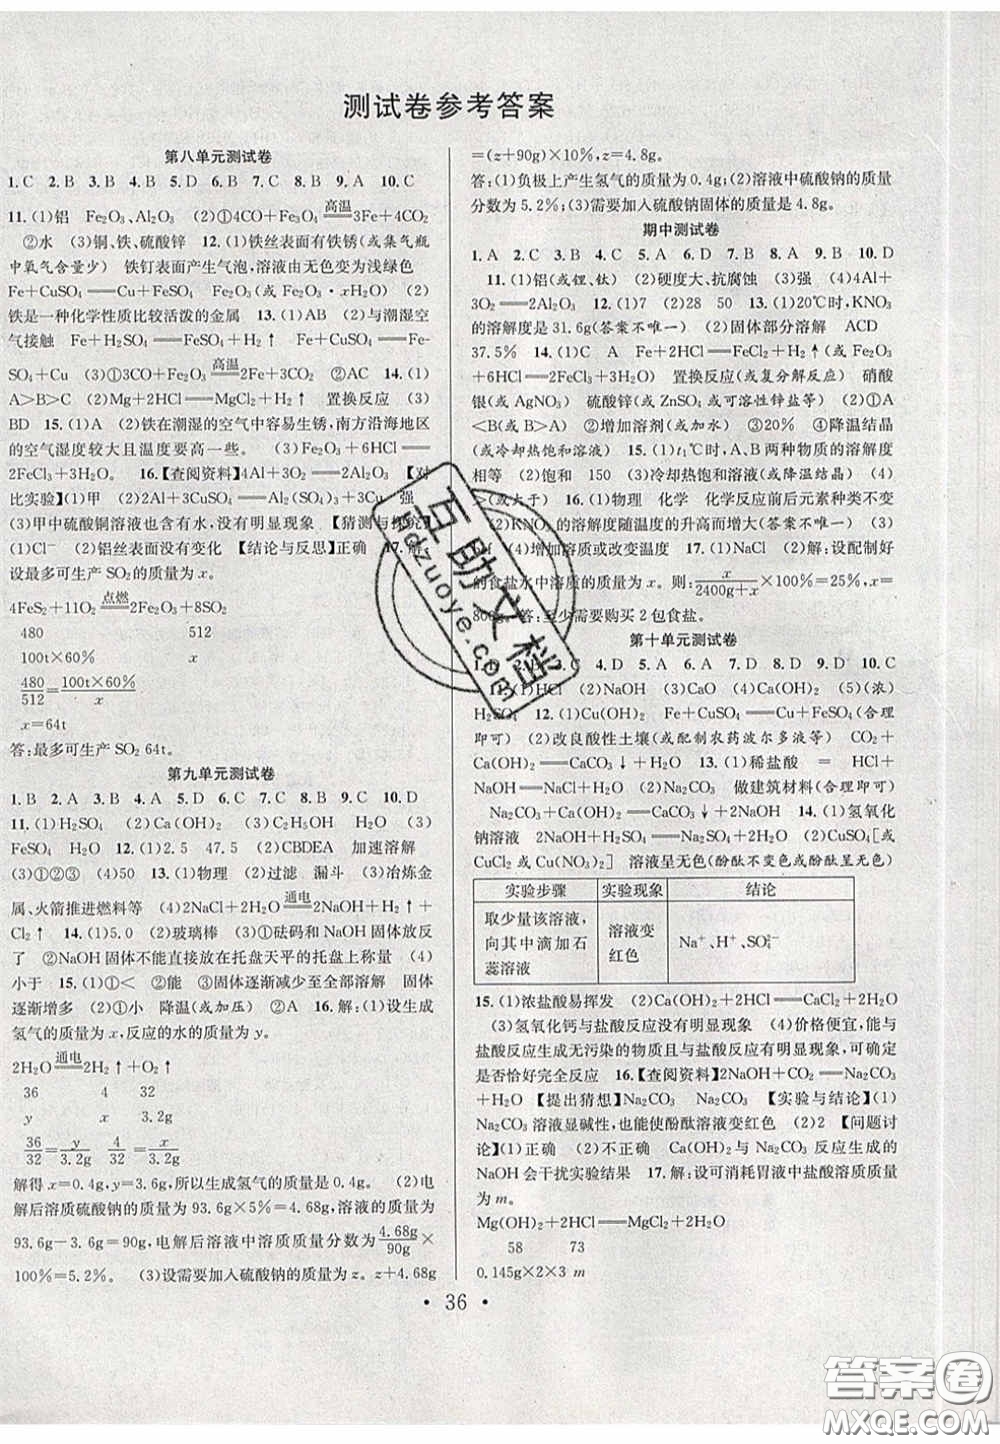 测试卷参考答案
第八单元测试卷
1.C 2.B 3.B 4.B 5.D 6.B 7.C 8.B 9.A 10.C
11.(1)铝 Fe₂O₃、Al₂O₃ (2)①4CO+Fe₃O₄ 高温 3Fe+4CO₂
②水 (3)铜、铁、硫酸锌 12.(1)铁丝表面有铁锈(或集气瓶
中氧气含量少) 铁钉表面产生气泡,溶液由无色变为浅绿色
Fe+CuSO₄══Cu+FeSO₄ Fe₂O₃(或Fe₂O₃·xH₂O) (2)
铁是一种化学性质比较活泼的金属 13.(1)AB (2)与潮湿空
气接触 Fe+H₂SO₄══FeSO₄+H₂↑ Fe+CuSO₄══Fe-
SO₄+Cu (3)①3CO+Fe₂O₃ 高温 2Fe+3CO₂ ②AC 14.(1)
A>B>C (2)Mg+2HCl══MgCl₂+H₂↑ 置换反应 (3)
BD 15.(1)铁在潮湿的空气中容易生锈,南方沿海地区
的空气湿度较大且温度要高一些。 (3)Fe₂O₃+6HCl══
2FeCl₃+3H₂O 16.【查阅资料】4Al+3O₂══2Al₂O₃ 【对
比实验】(1)甲 (2)2Al+3CuSO₄══Al₂(SO₄)₃+3Cu 强
(3)甲中硫酸铜溶液也含有水,没有明显现象 【猜测与探究】
(1)Cl⁻ (2)铝丝表面没有变化 【结论与反思】正确 17.解:
设最多可生产SO₂的质量为x。
4FeS₂+11O₂ 点燃 2Fe₂O₃+8SO₂
480 512
100t×60% x
480/512=100t×60%/x
x=64t
答:最多可生产SO₂ 64t。
第九单元测试卷
1.B 2.A 3.C 4.A 5.D 6.D 7.D 8.B 9.C 10.D
11.(1)H₂SO₄ (2)Ca(OH)₂ (3)C₂H₅OH H₂O (3)
FeSO₄ H₂O 12.(1)2.5 47.5 (2)CBDEA 加速溶解
(3)①②③ (4)50 13.(1)物理 (2)过滤 漏斗 (3)冶炼金
属、火箭推进燃料等 (4)2NaCl+2H₂O 通电 2NaOH+H₂↑+
Cl₂↑ 14.(1)5.0 (2)玻璃棒 (3)①砝码和NaOH固体放反
了 ②NaOH固体不能直接放在托盘天平的托盘上称量 (4)
小 15.(1)①< ②能 ③固体逐渐减少至全部溶解 固体
逐渐增多 (2)①小 降温(或加压) ②A 16.解:(1)设生成
氢气的质量为x,反应的水的质量为y。
2H₂O 通电 2H₂↑+O₂↑
36 4 32
y x 3.2g
36/32=y/3.2g 4/32=x/3.2g
解得x=0.4g,y=3.6g,所以生成氢气的质量是0.4g。 (2)电
解后溶质硫酸钠的质量为93.6g×5%=4.68g,溶液的质量为
93.6g-3.6g=90g,电解后溶液中溶质质量分数为4.68g/90g×
100%=5.2%。 (3)设需要加入硫酸钠的质量为z。z+4.68g
=(z+90g)×10%,z=4.8g。
答:(1)负极上产生氢气的质量为0.4g;(2)溶液中硫酸钠的质量
分数为5.2%;(3)需要加入硫酸钠固体的质量是4.8g。
期中测试卷
1.A 2.C 3.C 4.C 5.A 6.B 7.B 8.D 9.B 10.D
11.(1)铝(或锂、钛) (2)硬度大、抗腐蚀 (3)强 (4)4Al+
3O₂══2Al₂O₃ 12.(1)7 (2)28 50 13.(1)20℃时,KNO₃
的溶解度是31.6g(答案不唯一) (2)固体部分溶解 ACD
37.5% 14.(1)C A Fe+2HCl══FeCl₂+H₂↑(或Fe+
H₂SO₄══FeSO₄+H₂↑) 置换反应(或复分解反应) 硝酸
银(或AgNO₃) 硫酸锌(或ZnSO₄或可溶性锌盐等) (2)①A
<B(或B>A) ②增加溶剂(或加水) ③20% ④降温结晶
(或冷却热饱和溶液) 15.(1)t₁℃时,A、B两种物质的溶解度
相等 (2)饱和 150 (3)冷却热饱和溶液(或降温结晶) (4)
>(或大于) 16.(1)物理 化学 化学反应前后元素种类不变
(2)KNO₃的溶解度随温度的升高而增大(答案不唯一) (3)
(4)增加溶质或改变温度 17.(1)NaCl (2)解:设配制好
的食盐水中溶质的质量为x。则:x/2400g+x×100%=25%,x=
800g。答:至少需要购买2包食盐。
第十单元测试卷
3.C 4.D 5.A 6.A 7.D 8.D 9.D 10.C
11.(1)HCl (2)NaOH (3)CaO (4)Ca(OH)₂ (5)(浓)
H₂SO₄ 12.(1)Cu(OH)₂ Fe+CuSO₄══Cu+FeSO₄(合理
即可) (2)改良酸性土壤(或配制农药波尔多液等) CO₂
+Ca(OH)₂══CaCO₃↓+H₂O 13.(1)稀盐酸 = HCl+
NaOH══NaCl+H₂O (2)> 做建筑材料(合理即可)
Na₂CO₃+Ca(OH)₂══CaCO₃↓+2NaOH 14.(1)氢氧化
钠溶液 2NaOH+H₂SO₄══Na₂SO₄+2H₂O (2)CuSO₄[或
CuCl₂或Cu(NO₃)₂] 溶液呈无色(酚酞不变色或酚酞呈无色)
实验步骤 实验现象 结论
取少量该溶液,向其中滴加石蕊溶液 溶液变红色 Na⁺、H⁺、SO₄²⁻
15.(1)浓盐酸易挥发 (2)Ca(OH)₂+2HCl══CaCl₂+2H₂O
(3)氢氧化钙与盐酸反应没有明显现象 (4)价格便宜,能与
与盐酸反应生成无污染的物质且与盐酸反应有明显现象,可确定
是否恰好完全反应 16.【查阅资料】2NaOH+CO₂══Na₂CO₃
+H₂O 【提出猜想】Na₂CO₃ Na₂CO₃ 【实验与结论】(1)
Na₂CO₃溶液显碱性,也能使酚酞溶液变红色 (2)2 【问题讨
论】(1)正确 (2)不正确 Ca(OH)₂与Na₂CO₃反应生成的
NaOH会干扰实验结果 17.解:设可消耗胃液中盐酸溶质质量
为m。
Mg(OH)₂+2HCl══MgCl₂+2H₂O
58 73
0.145g×2×3 m
·36·
互助文档
hdzuoye.com
答案圈
MXQE.COM